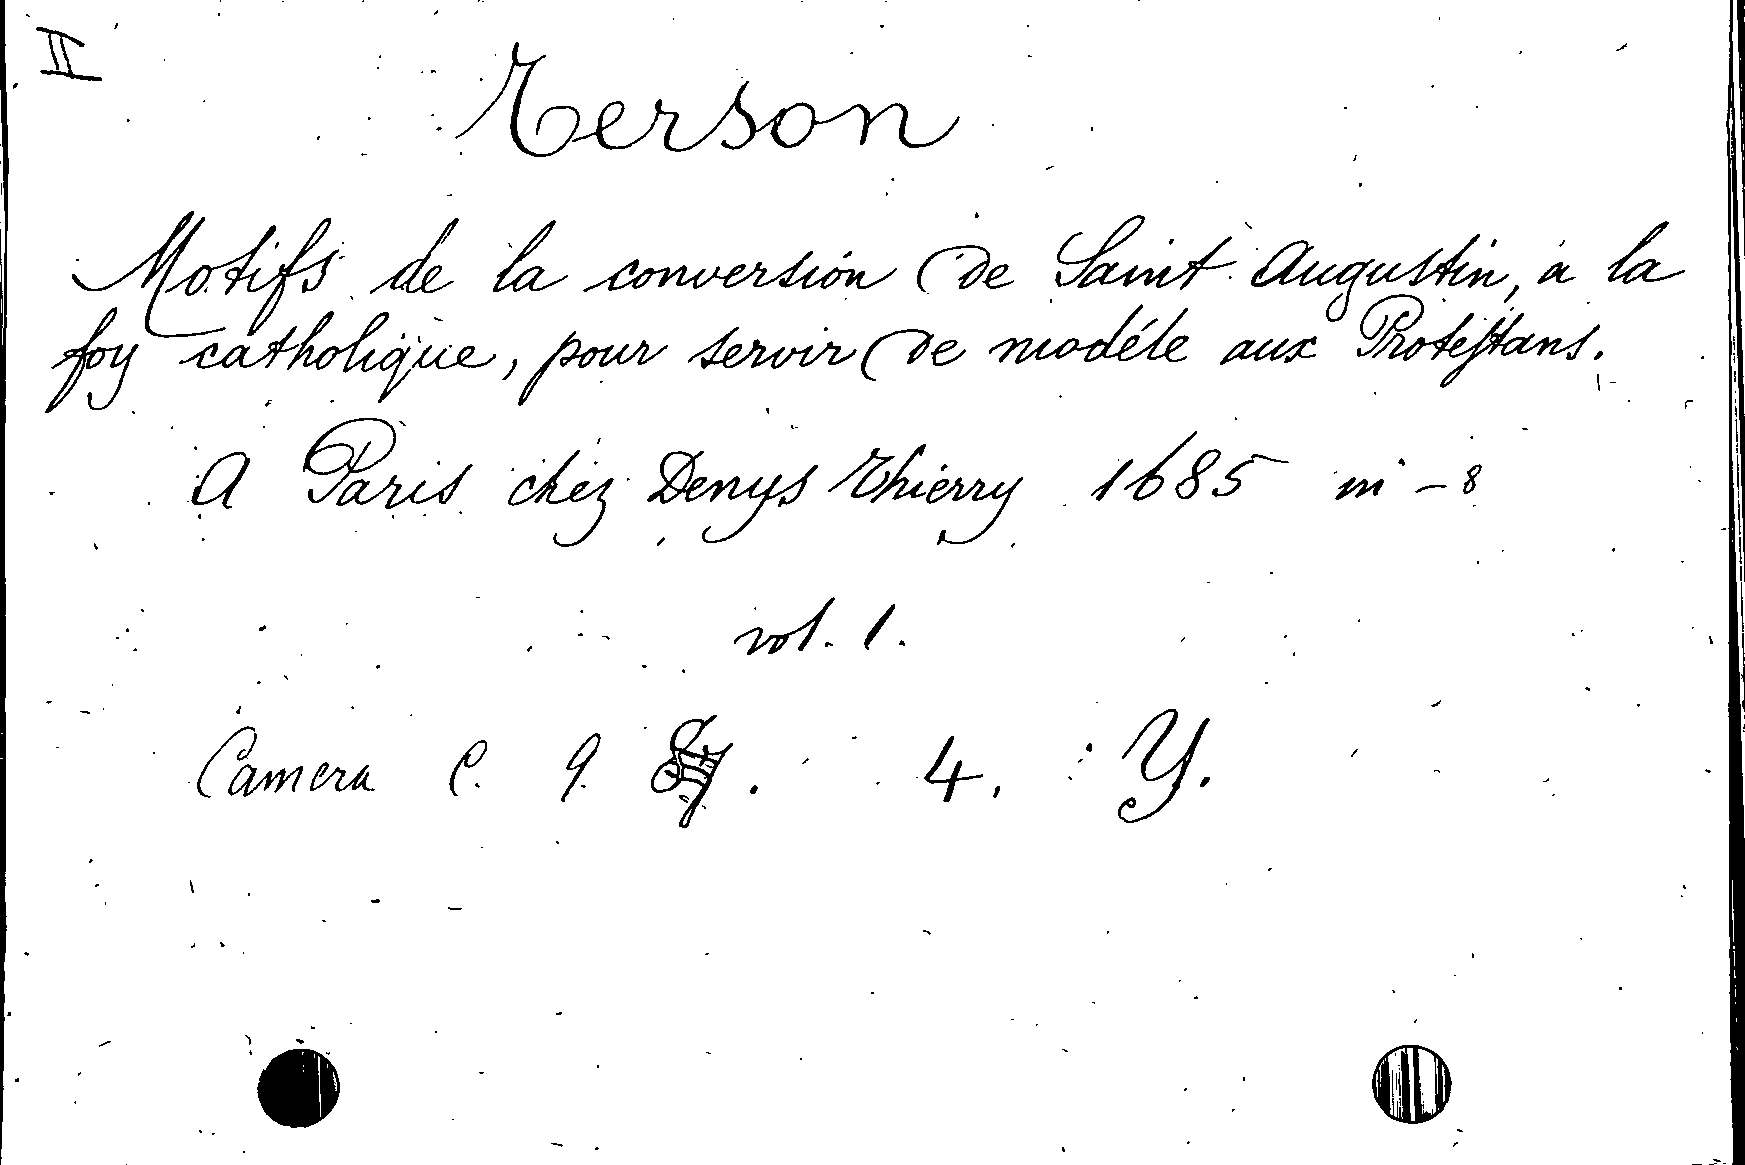 II
Terson
Motifs de la conversion de Saint Augustin, a la
foy catholique, pour servir de modéle aux Protestans.
A Paris chez Denys Thierry 1685 in-8
vol. 1.
Camera C. 9. 4. Y.